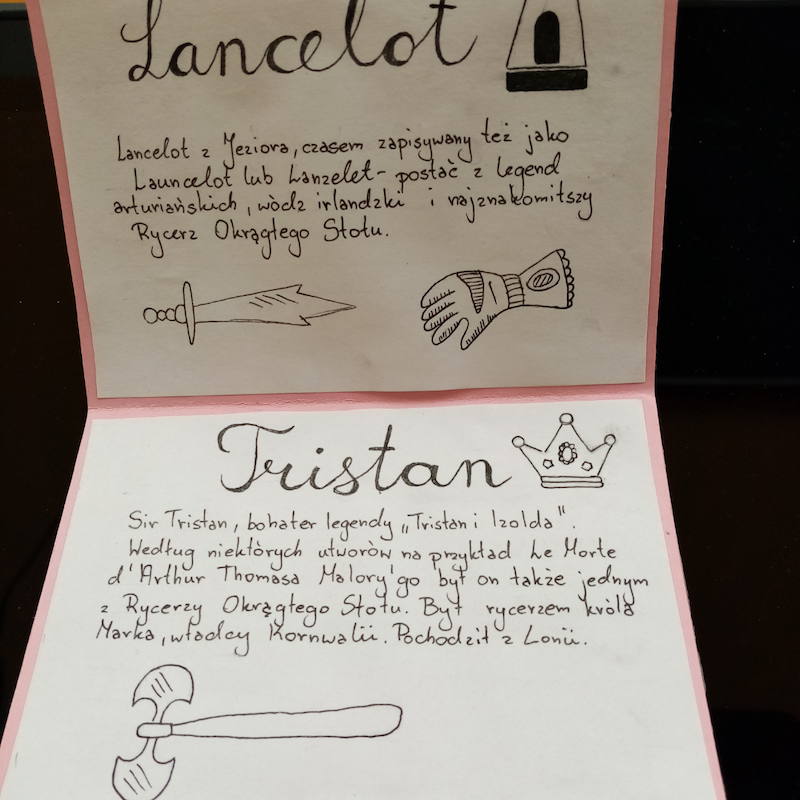 Lancelot
Lancelot z Jeziora, czasem zapisywany też jako
Launcelot lub Lanzelet - postać z legend
arturiańskich, wódz irlandzki i najznakomitszy
Rycerz Okrągłego Stołu.
Tristan
Sir Tristan, bohater legendy „Tristan i Izolda".
Według niektórych utworów na przykład Le Morte
d'Arthur Thomasa Malory'go był on także jednym
z Rycerzy Okrągłego Stołu. Był rycerzem króla
Marka, władcy Kornwalii. Pochodził z Lonii.